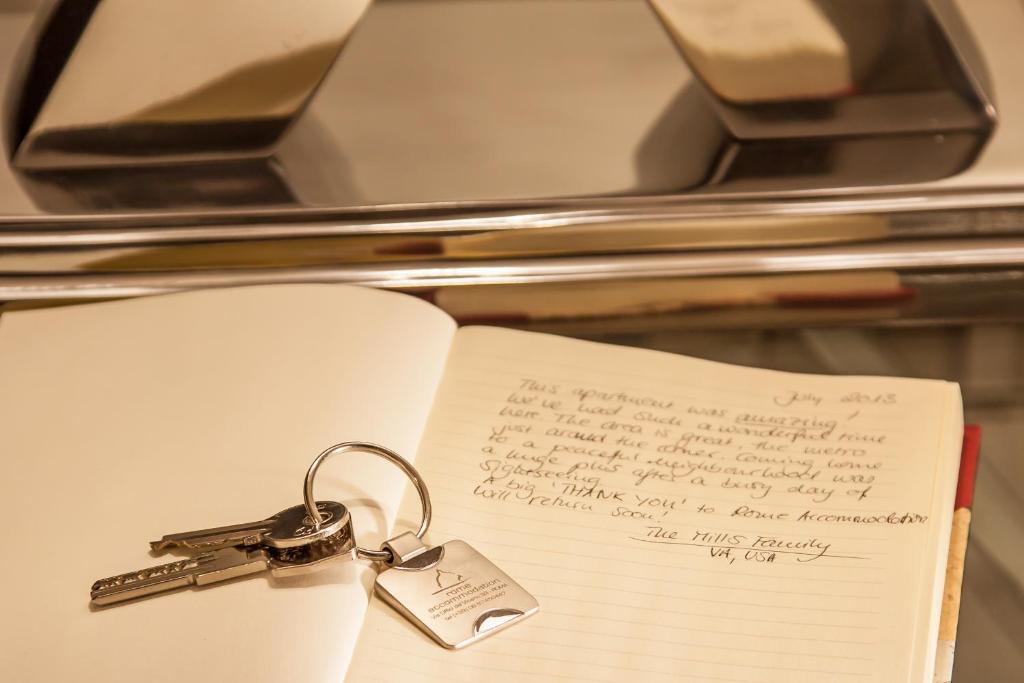 July 2013
This apartment was amazing!
We've had such a wonderful time
here. The area is great, the metro
just around the corner. Coming home
to a peaceful neighbourhood was
a huge plus after a busy day of
sightseeing.
A big 'THANK YOU' to Rome Accommodation
Will return soon!
The Mills Family
VA, USA
rome
accommodation